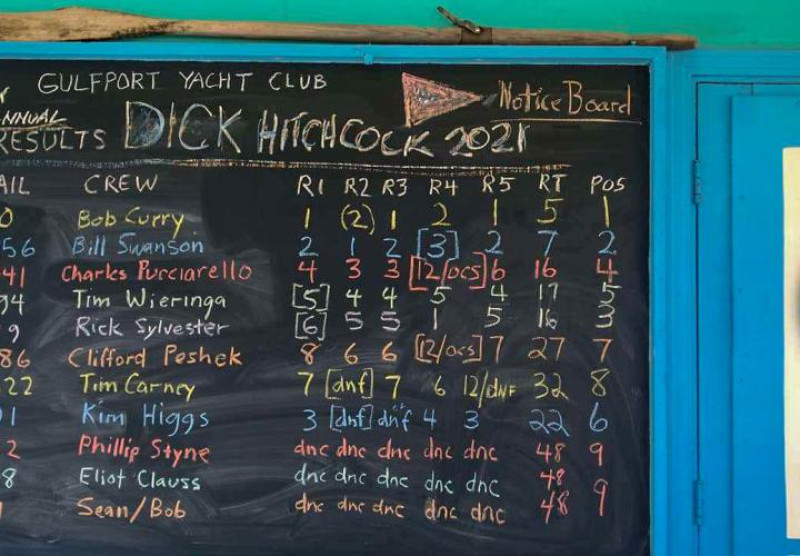 GULFPORT YACHT CLUB
Notice Board
ANNUAL
RESULTS DICK HITCHCOCK 2021
AIL CREW R1 R2 R3 R4 R5 RT POS
0 Bob Curry 1 (2) 1 2 1 5 1
56 Bill Swanson 2 1 2 [3] 2 7 2
41 Charles Purciarello 4 3 3 [12/ocs] 6 16 4
94 Tim Wieringa [5] 4 4 5 4 17 5
9 Rick Sylvester [6] 5 5 1 5 16 3
86 Clifford Peshek 8 6 6 [12/ocs] 7 27 7
22 Tim Carney 7 [dnf] 7 6 12/DNF 32 8
1 Kim Higgs 3 [dnf] dnf 4 3 22 6
2 Phillip Styne dnc dnc dnc dnc dnc 48 9
8 Eliot Clauss dnc dnc dnc dnc dnc 48 9
Sean/Bob dnc dnc dnc dnc dnc 48